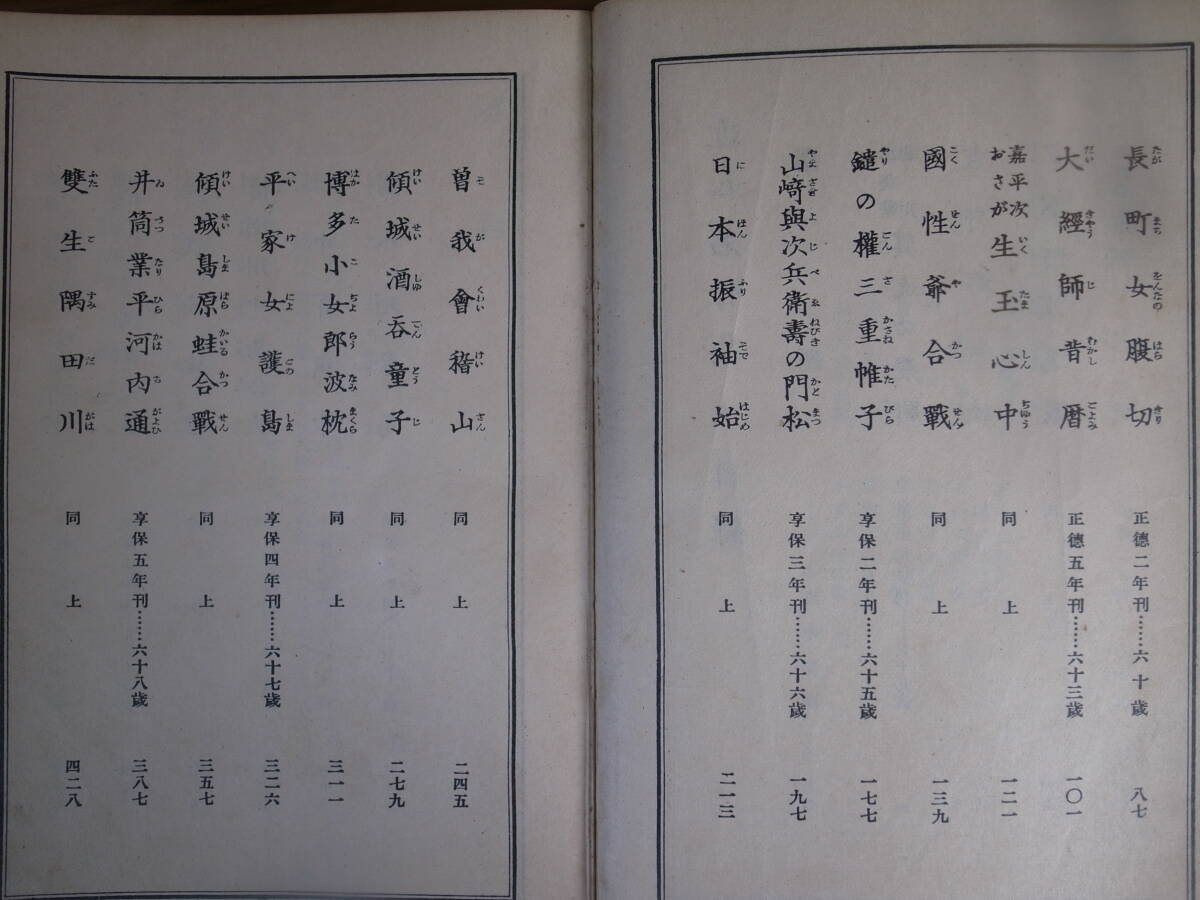 長町女腹切 正德二年刊……六十歲 八七
大經師昔曆 正德五年刊……六十三歲 一〇一
嘉平次おさが生玉心中 同上 一二一
國性爺合戰 同上 一三九
鑓の權三重帷子 享保二年刊……六十五歲 一七七
山﨑與次兵衞壽の門松 享保三年刊……六十六歲 一九七
日本振袖始 同上 二一三
曾我會稽山 同上 二四五
傾城酒呑童子 同上 二七九
博多小女郎波枕 同上 三一一
平家女護島 享保四年刊……六十七歲 三二六
傾城島原蛙合戰 同上 三五七
井筒業平河內通 享保五年刊……六十八歲 三八七
雙生隅田川 同上 四二八